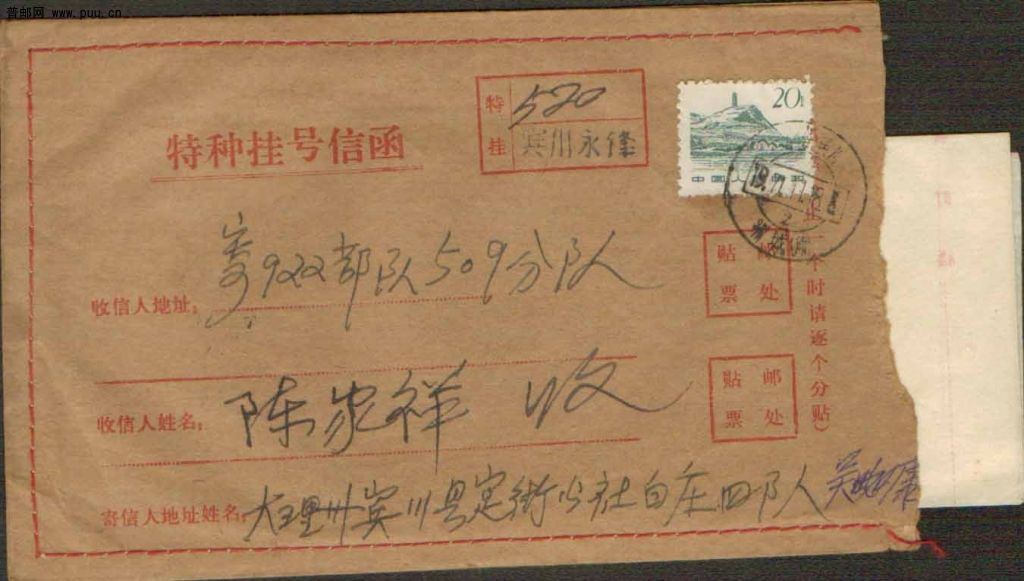 普邮网 www.puu.cn
特种挂号信函
特挂
520
宾川永锋
20
中国人民邮政
收信人地址：
寄933部队509分队
收信人姓名：
陈家祥 收
寄信人地址姓名：
大理州宾川县宾街公社白庄四队人
贴邮票处
贴邮票处
个时请逐个分贴）